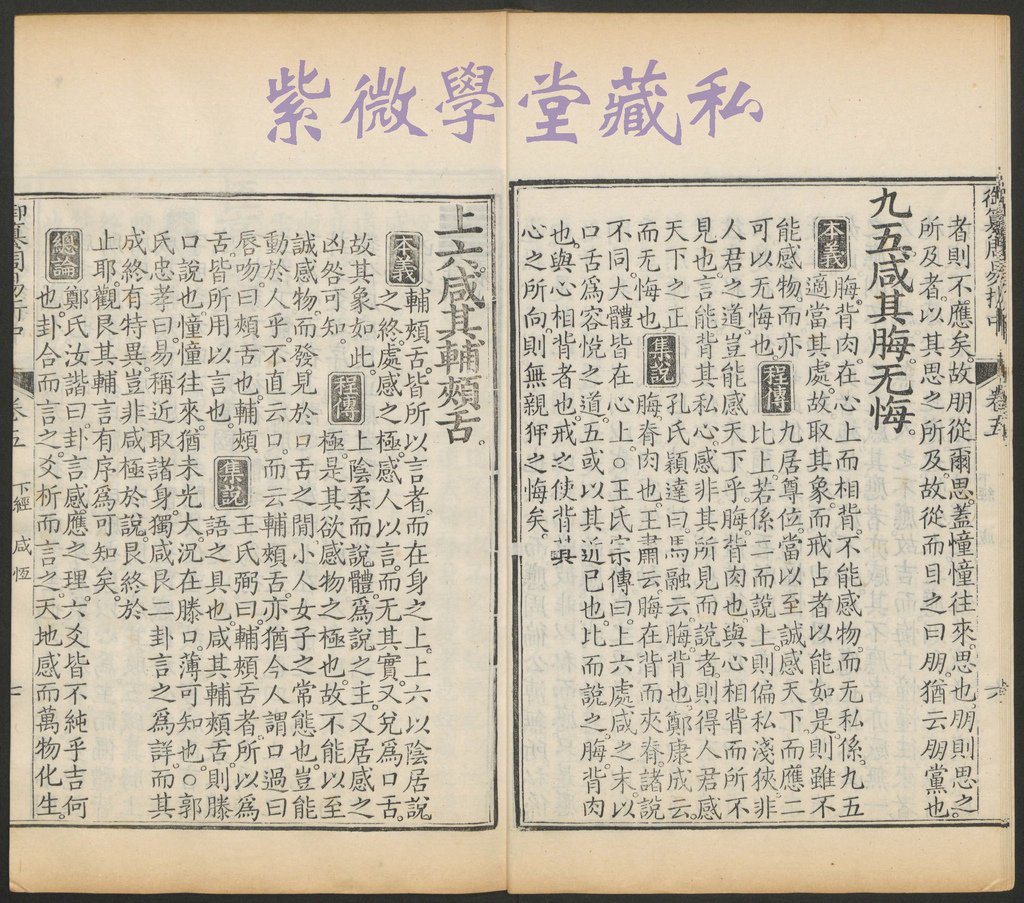 紫微學堂藏私
御纂周易折中 卷五
者則不應矣。故朋從爾思。蓋憧憧往來。思也。朋則思之
所及者。以其思之所及。故從而目之曰朋。猶云朋黨也。
九五。咸其脢。无悔。
本義 脢。背肉。在心上而相背。不能感物。而无私係。九五
適當其處。故取其象。而戒占者以能如是。則雖不
能感物。而亦 程傳 九居尊位。當以至誠感天下。而應二
可以无悔也。 比上。若係二而說上。則偏私淺狹。非
人君之道。豈能感天下乎。脢。背肉也。與心相背而所不
見也。言能背其私心。感非其所見而說者。則得人君感
天下之正 集說 孔氏穎達曰。馬融云。脢。背也。鄭康成云。
而无悔也。 脢。脊肉也。王肅云。脢在背而夾脊。諸說
不同。大體皆在心上。○王氏宗傳曰。上六處咸之末。以
口舌爲容悅之道。五或以其近已也。比而說之。脢。背肉
也。與心相背者也。戒之使背其
心之所向。則無親狎之悔矣。
上六。咸其輔頰舌。
本義 輔頰舌。皆所以言者。而在身之上。上六以陰居說
之終。處感之極。感人以言。而无其實。又兌爲口舌。
故其象如此。 程傳 上陰柔而說體。爲說之主。又居感之
凶咎可知。 極。是其欲感物之極也。故不能以至
誠感物。而發見於口舌之閒。小人女子之常態也。豈能
動於人乎。不直云口。而云輔頰舌。亦猶今人謂口過曰
唇吻。曰頰舌也。輔頰 集說 王氏弼曰。輔頰舌者。所以爲
舌。皆所用以言也。 語之具也。咸其輔頰舌。則滕
口說也。憧憧往來。猶未光大。況在滕口。薄可知也。○郭
氏忠孝曰。易稱近取諸身。獨咸艮二卦言之爲詳。而其
成終有特異。豈非咸極於說。艮終於
止耶。觀艮其輔言有序。爲可知矣。
總論 鄭氏汝諧曰。卦言感應之理。六爻皆不純乎吉。何
也。卦合而言之。爻析而言之。天地感而萬物化生。
卷五 下經 咸 恆